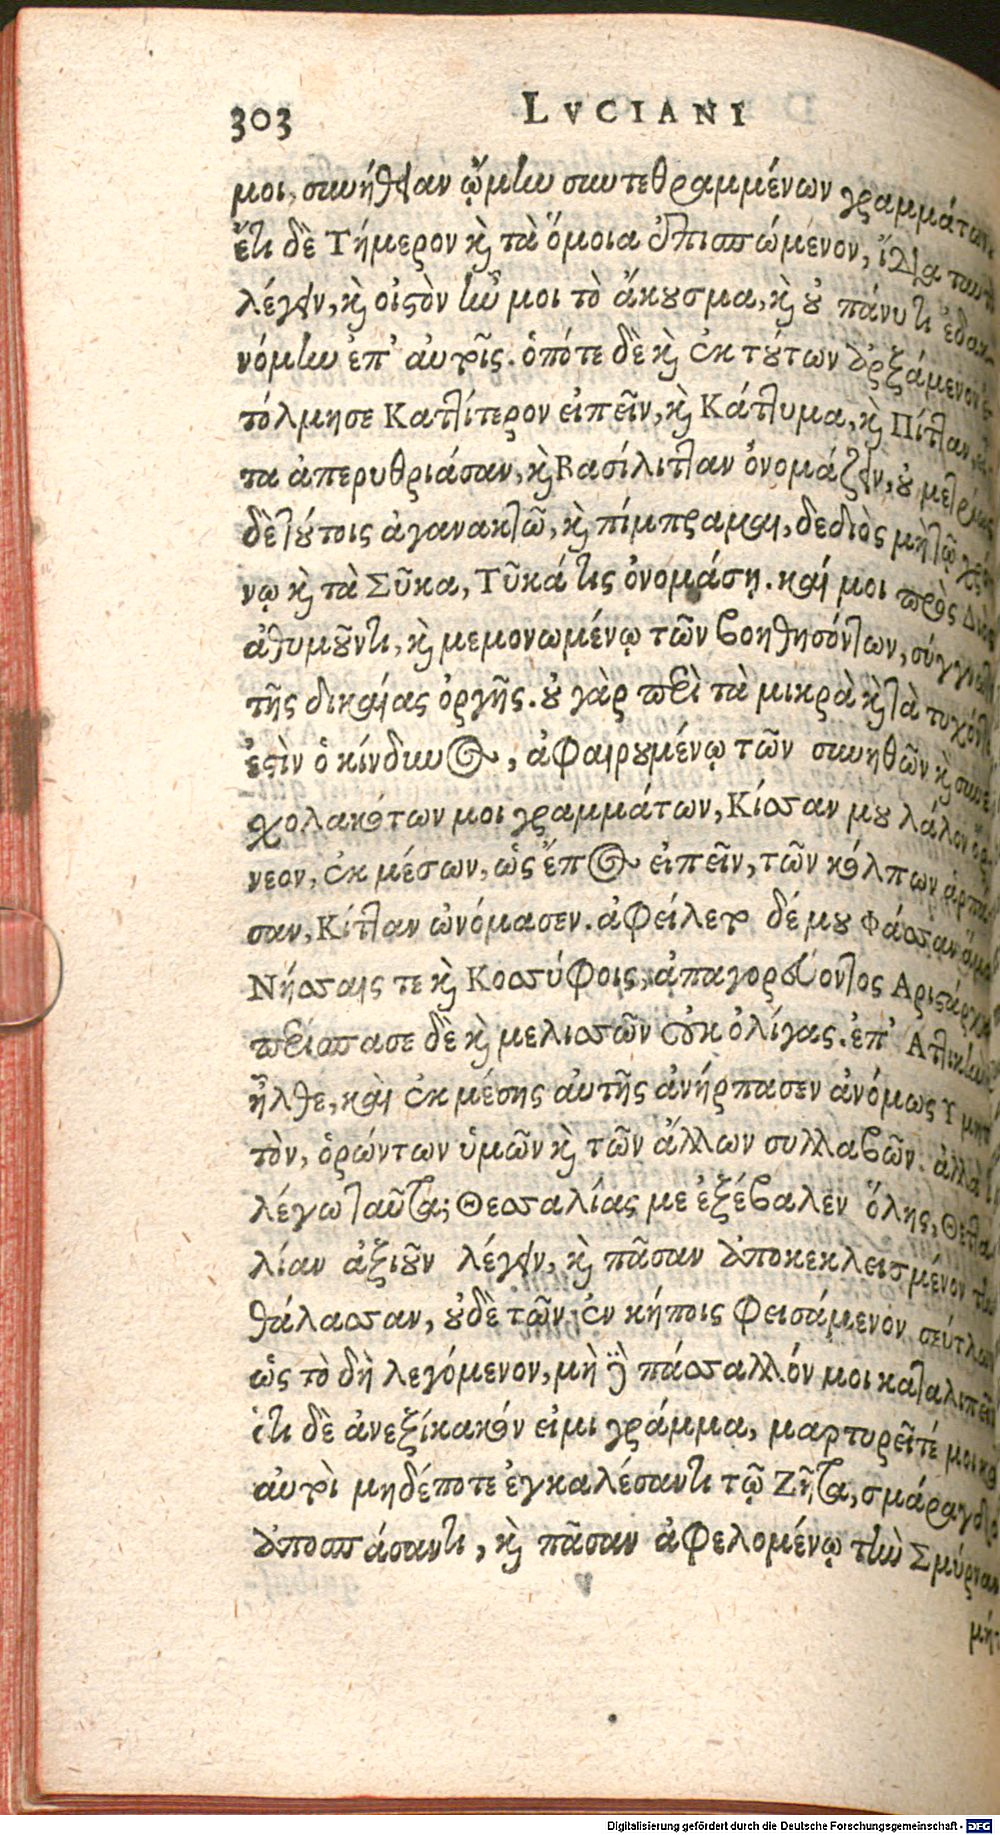 303 LVCIANI
μοι, συνήθειαν ᾤμην συντεθραμμένων γραμμάτων.
ἔτι δὲ Τήμερον καὶ τὰ ὅμοια ἐπισπώμενον, ἴδια ταυτὶ
λέγειν, καὶ οἰστὸν ἦν μοι τὸ ἄκουσμα, καὶ οὐ πάνυ τι ἐδακ
νόμην ἐπ' αὐτοῖς. ὁπότε δὲ καὶ ἐκ τούτων ἀρξάμενον ἐ
τόλμησε Καττίτερον εἰπεῖν, καὶ Κάττυμα, καὶ Πίτταν,
τα ἀπερυθριάσαν, καὶ Βασίλιτταν ὀνομάζειν, οὐ μετρίως
δὲ τούτοις ἀγανακτῶ, καὶ πίμπραμαι, δεδιὸς μὴ τῷ χρό
νῳ καὶ τὰ Σῦκα, Τῦκά τις ὀνομάσῃ. καί μοι πρὸς Διὸς
ἀθυμοῦντι, καὶ μεμονωμένῳ τῶν βοηθησόντων, σύγγνωτε
τῆς δικαίας ὀργῆς. οὐ γὰρ περὶ τὰ μικρὰ καὶ τὰ τυχόντα
ἐστὶν ὁ κίνδυνος, ἀφαιρουμένῳ τῶν συνηθῶν καὶ συνε
χολακότων μοι γραμμάτων, Κίσσαν μου λάλον ὄρ
νεον, ἐκ μέσων, ὡς ἔπος εἰπεῖν, τῶν κόλπων ἁρπά
σαν, Κίτταν ὠνόμασεν. ἀφείλετο δέ μου Φάσσαν ἅμα
Νήσσαις τε καὶ Κοσσύφοις, ἀπαγορεύοντος Ἀριστάρχου
περιέσπασε δὲ καὶ μελισσῶν οὐκ ὀλίγας. ἐπ' Ἀττικὴν
ἦλθε, καὶ ἐκ μέσης αὐτῆς ἀνήρπασεν ἀνόμως Ὑμητ
τὸν, ὁρώντων ὑμῶν καὶ τῶν ἄλλων συλλαβῶν. ἀλλὰ τί
λέγω ταῦτα; Θεσσαλίας με ἐξέβαλεν ὅλης, Θεττα
λίαν ἀξιοῦν λέγειν, καὶ πᾶσαν ἀποκεκλεισμένον τὴν
θάλασσαν, οὐδὲ τῶν ἐν κήποις φεισάμενον σεύτλων
ὡς τὸ δὴ λεγόμενον, μὴ δὲ πάσσαλόν μοι καταλιπεῖν
ὅτι δὲ ἀνεξίκακόν εἰμι γράμμα, μαρτυρεῖτέ μοι καὶ
αὐτοὶ μηδέποτε ἐγκαλέσαντι τῷ Ζῆτα, σμάραγδον
ἀποσπάσαντι, καὶ πᾶσαν ἀφελομένῳ τὴν Σμύρναν
μήτ
Digitalisierung gefördert durch die Deutsche Forschungsgemeinschaft - DFG